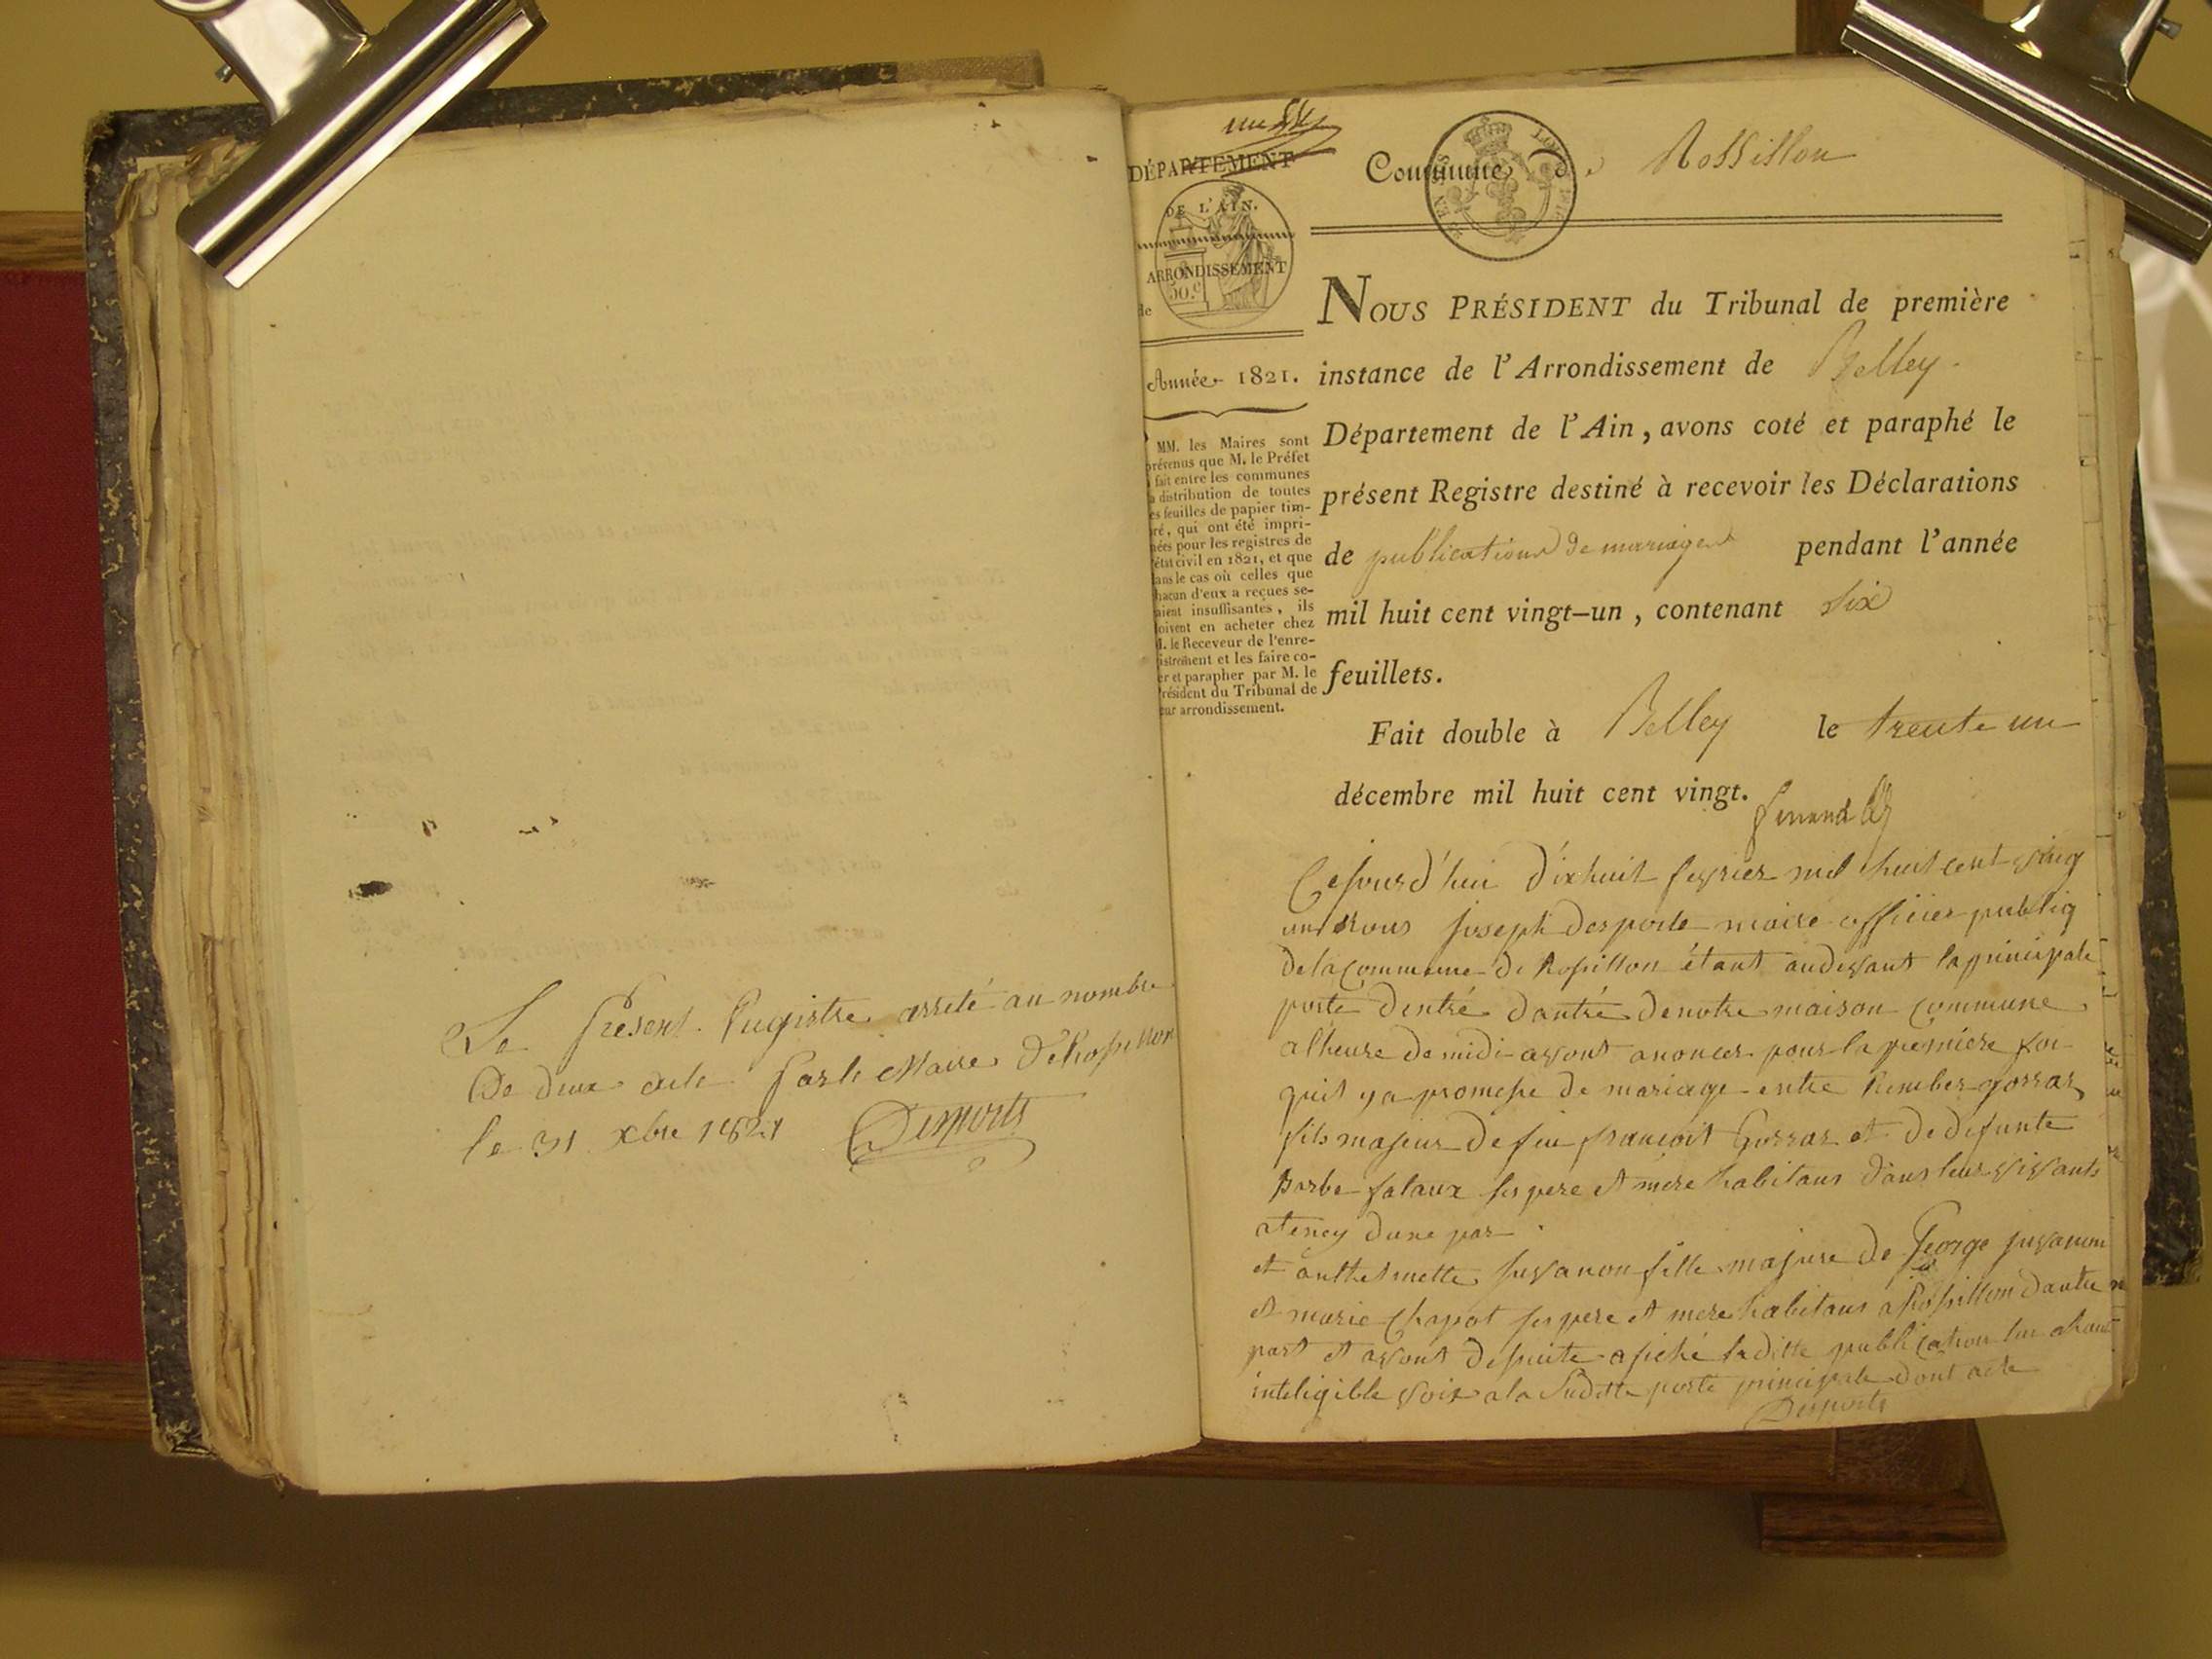 Le present Registre arreté au nombre
De deux acte par le Maire De Rossillon
le 31 xbre 1821 Desports
DÉPARTEMENT
DE L'AIN.
ARRONDISSEMENT
50.c
de
Année 1821.
MM. les Maires sont
prévenus que M. le Préfet
a fait entre les communes
la distribution de toutes
les feuilles de papier tim-
bré, qui ont été impri-
mées pour les registres de
l'état civil en 1821, et que
dans le cas où celles que
chacun d'eux a reçues se-
raient insuffisantes, ils
doivent en acheter chez
M. le Receveur de l'enre-
gistrement et les faire co-
ter et parapher par M. le
Président du Tribunal de
leur arrondissement.
Commune de Rossillon
NOUS PRÉSIDENT du Tribunal de première
instance de l'Arrondissement de Belley
Département de l'Ain, avons coté et paraphé le
présent Registre destiné à recevoir les Déclarations
de publications de mariages pendant l'année
mil huit cent vingt-un, contenant six
feuillets.
Fait double à Belley le trente un
décembre mil huit cent vingt.
Cejourd'hui dixhuit fevrier mil huit cent ving
un nous joseph desporte maire officier publiq
de la commune de Rossillon étant audevant la principale
porte dentré dantré de notre maison commune
alheure de midi avont anoncer pour la premiere foi
quil y a promesse de mariage entre Rember gorras
fils majeur de feu francoit Gorras et de defunte
Barbe falaux ses pere et mere habitans dans leur vivants
atency dune par
et anthelmette juvanon fille majure de George juvanon
et marie Chapot ses pere et mere habitans a Rossillon dautre
part et avont de suite afiché laditte publication lu ahaut
inteligible voix a la suditte porte principale dont acte
Desports